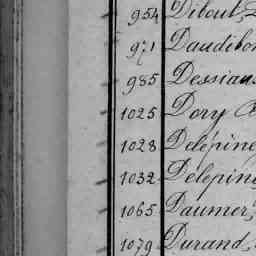 954 Ditout,
971 Daudibon
985 Dessiaus
1025 Dory
1028 Delépine
1032 Delépine
1065 Daumer,
1079 Durand,